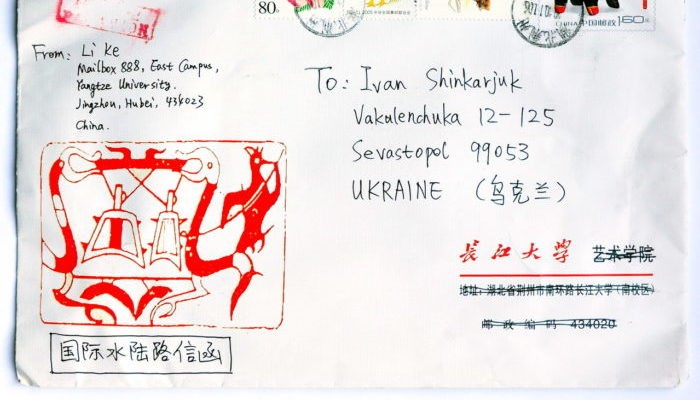 80分
CHINA 中国邮政 160分
From: Li Ke
Mailbox 888, East Campus,
Yangtze University.
Jingzhou, Hubei, 434023
China.
To: Ivan Shinkarjuk
Vakulenchuka 12-125
Sevastopol 99053
UKRAINE (乌克兰)
长江大学 艺术学院
地址：湖北省荆州市南环路长江大学(南校区)
邮政编码 434020
国际水陆路信函